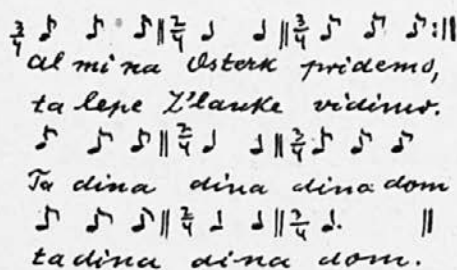 3/4 ♪ ♪ ♪ || 2/4 ♩ ♩ || 3/4 ♪ ♪ ♪ :||
Al mi na Osterk pridemo,
ta lepe Z'lauke vidimo.
♪ ♪ ♪ || 2/4 ♩ ♩ || 3/4 ♪ ♪ ♪
Ta dina dina dina dom
♪ ♪ ♪ || 2/4 ♩ ♩ || 2/4 ♩. ||
ta dina dina dom.